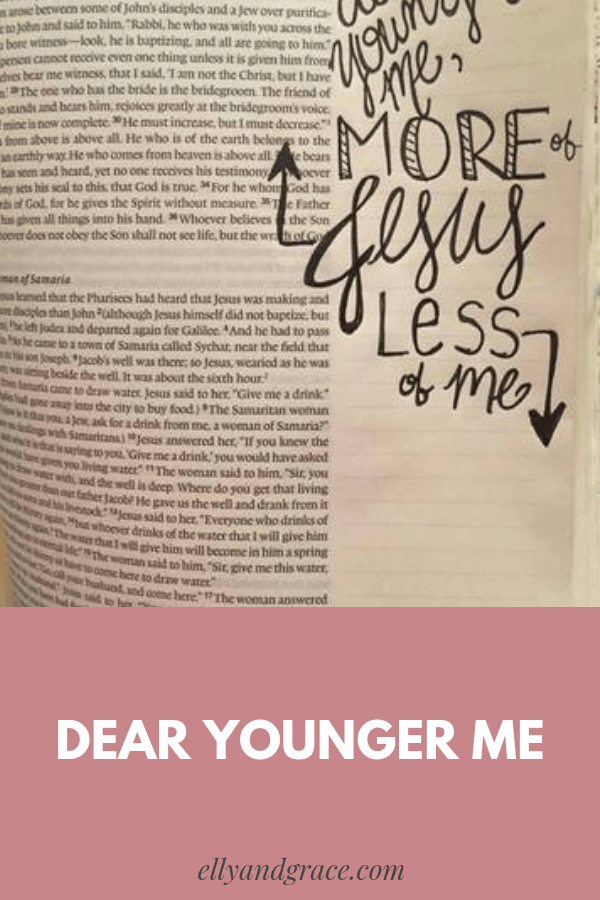 arose between some of John's disciples and a Jew over purifica-
to John and said to him, "Rabbi, he who was with you across the
bore witness—look, he is baptizing, and all are going to him."
person cannot receive even one thing unless it is given him from
bear me witness, that I said, 'I am not the Christ, but I have
²⁹The one who has the bride is the bridegroom. The friend of
stands and hears him, rejoices greatly at the bridegroom's voice.
mine is now complete. ³⁰He must increase, but I must decrease."
from above is above all. He who is of the earth belongs to the
an earthly way. He who comes from heaven is above all. He bears
has seen and heard, yet no one receives his testimony.
sets his seal to this, that God is true. ³⁴For he whom God has
of God, for he gives the Spirit without measure. ³⁵The Father
has given all things into his hand. ³⁶Whoever believes in the Son
does not obey the Son shall not see life, but the wrath of God
of Samaria
learned that the Pharisees had heard that Jesus was making and
disciples than John ²(although Jesus himself did not baptize, but
³he left Judea and departed again for Galilee. ⁴And he had to pass
⁵So he came to a town of Samaria called Sychar, near the field that
his son Joseph. ⁶Jacob's well was there; so Jesus, wearied as he was
was sitting beside the well. It was about the sixth hour.
Samaria came to draw water. Jesus said to her, "Give me a drink."
had gone away into the city to buy food.) ⁹The Samaritan woman
is it that you, a Jew, ask for a drink from me, a woman of Samaria?"
dealings with Samaritans.) ¹⁰Jesus answered her, "If you knew the
that is saying to you, 'Give me a drink,' you would have asked
have given you living water." ¹¹The woman said to him, "Sir, you
draw water with, and the well is deep. Where do you get that living
than our father Jacob? He gave us the well and drank from it
and his livestock." ¹³Jesus said to her, "Everyone who drinks of
again, ¹⁴but whoever drinks of the water that I will give him
The water that I will give him will become in him a spring
life." ¹⁵The woman said to him, "Sir, give me this water,
or have to come here to draw water."
call your husband, and come here." ¹⁷The woman answered
Jesus said to her,
young
me,
MORE of
Jesus
Less
of me
DEAR YOUNGER ME
ellyandgrace.com